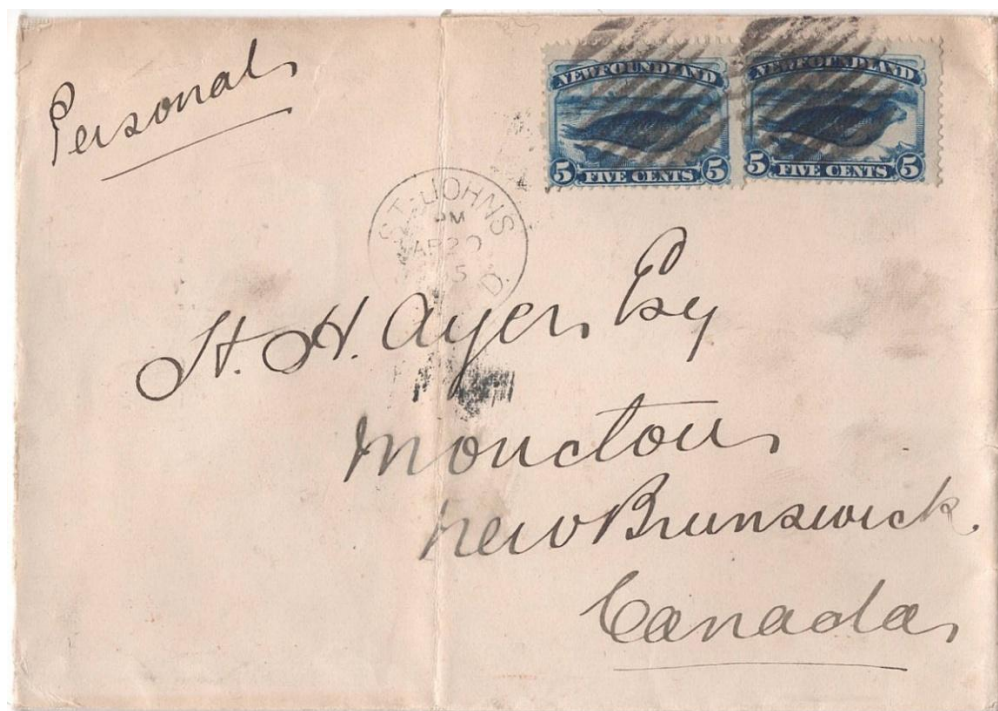 Personal
NEWFOUNDLAND
5 FIVE CENTS 5
NEWFOUNDLAND
5 FIVE CENTS 5
ST. JOHN'S
PM
AP 20
5
D.
H. H. Ayer, Esq
Moncton,
New Brunswick,
Canada,